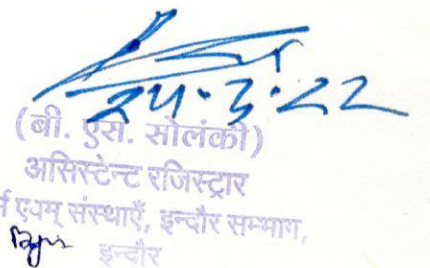 24.3.22
(बी. एस. सोलंकी)
असिस्टेन्ट रजिस्ट्रार
एवम् संस्थाएँ, इन्दौर सम्भाग,
इन्दौर